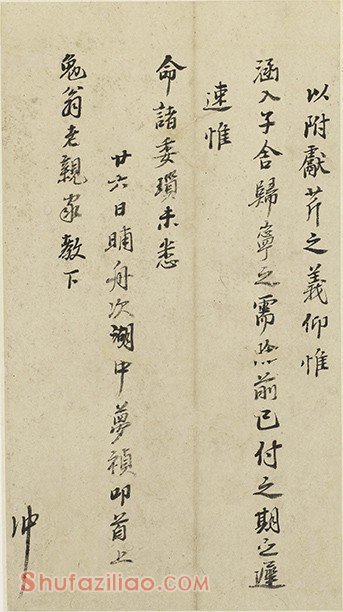 以附獻芹之義仰惟
涵入子舍歸寧之需點前已付之期之遲
速惟
命諸委瑣未悉
廿六日晡舟次湖中夢禎叩首上
翁老親家教下
沖
Shufaziliao.COM